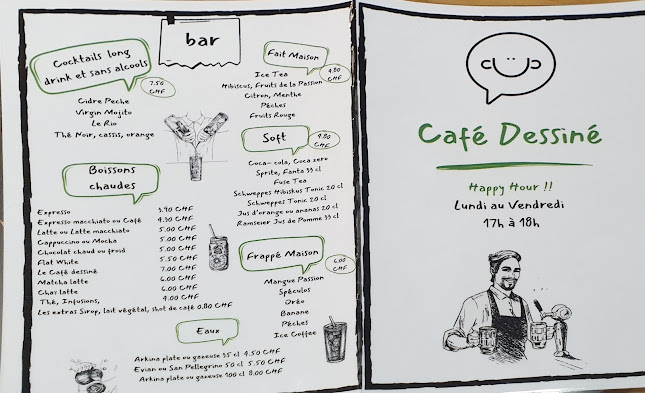 bar
Cocktails long
drink et sans alcools
7.50
CHF
Cidre Peche
Virgin Mojito
Le Rio
Thé Noir, cassis, orange
Boissons
chaudes
Espresso 3.90 CHF
Espresso macchiato ou Café 4.30 CHF
Latte ou Latte macchiato 5.00 CHF
Cappuccino ou Mocha 5.00 CHF
Chocolat chaud ou froid 5.00 CHF
Flat White 5.50 CHF
Le Café dessiné 7.00 CHF
Matcha latte 6.00 CHF
Chaï latte 6.00 CHF
Thé, Infusions, 4.00 CHF
Les extras Sirop, lait végétal, shot de café 0.80 CHF
Eaux
Arkina plate ou gazeuse 33 cl 4.50 CHF
Evian ou San Pellegrino 50 cl 5.50 CHF
Arkina plate ou gazeuse 100 cl 8.00 CHF
Fait Maison
4.80
CHF
Ice Tea
Hibiscus, Fruits de la Passion
Citron, Menthe
Pêches
Fruits Rouge
Soft
4.80
CHF
Coca-cola, Coca zero
Sprite, Fanta 33 cl
Fuse Tea
Schweppes Hibiskus Tonic 20 cl
Schweppes Tonic 20 cl
Jus d'orange ou ananas 20 cl
Ramseier Jus de Pomme 33 cl
Frappé Maison
6.00
CHF
Mangue Passion
Spéculos
Oréo
Banane
Pêches
Ice Coffee
Café Dessiné
Happy Hour !!
Lundi au Vendredi
17h à 18h